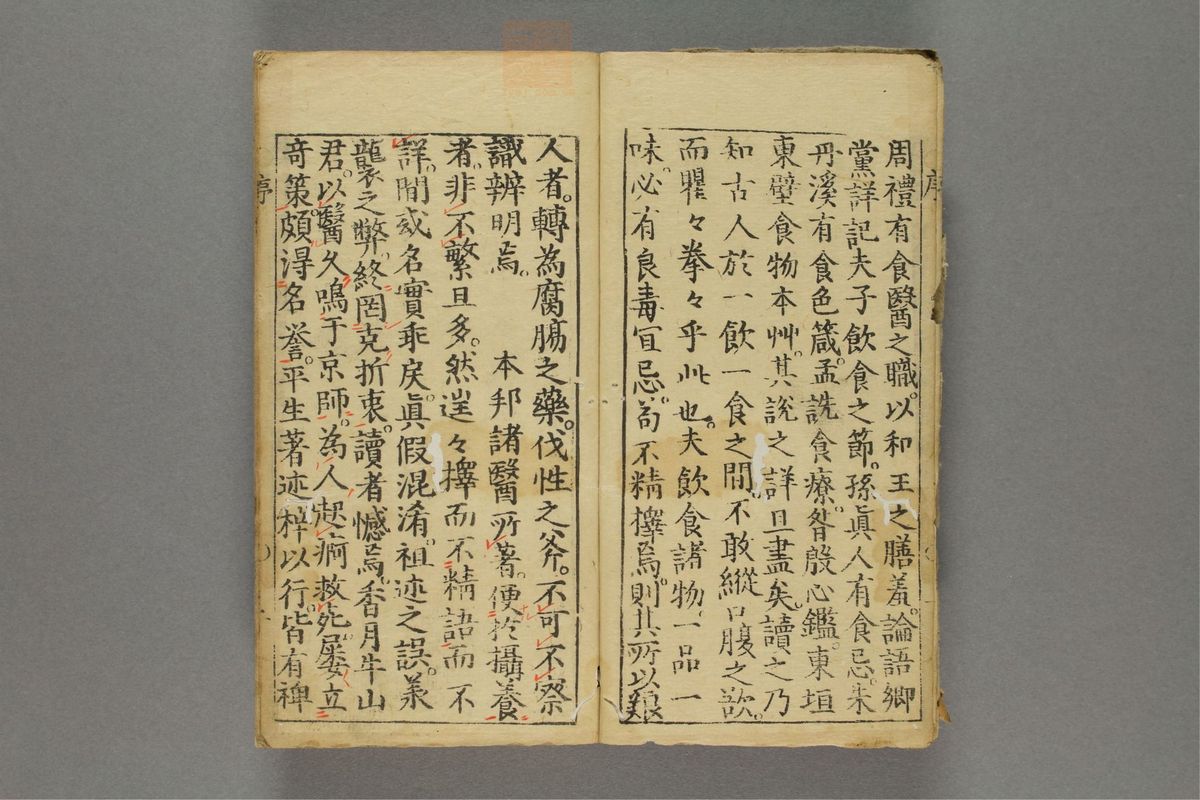 序
周禮有食醫之職。以和王之膳羞。論語鄕
黨詳記夫子飮食之節。孫眞人有食忌。朱
丹溪有食色箴。孟詵食療。昝殷心鑑。東垣
東壁食物本艸。其說之詳且盡矣。讀之乃
知古人於一飮一食之間。不敢縱口腹之欲。
而瞿々拳々乎此也。夫飮食諸物。一品一
味。必有良毒宜忌。苟不精擇焉。則其所以養
人者。轉為腐腸之藥。伐性之斧。不可不察
識辨明焉。 本邦諸醫所著。便於攝養
者。非不繁且多。然逞々擇而不精語而不
詳。間或名實乖戾。眞假混淆。祖述之誤。羕
襲之弊。終罔克折衷。讀者憾焉。香月牛山
君。以醫久鳴于京師。為人起痾救死。屢立
奇策。頗得名誉。平生著述梓以行。皆有裨
序